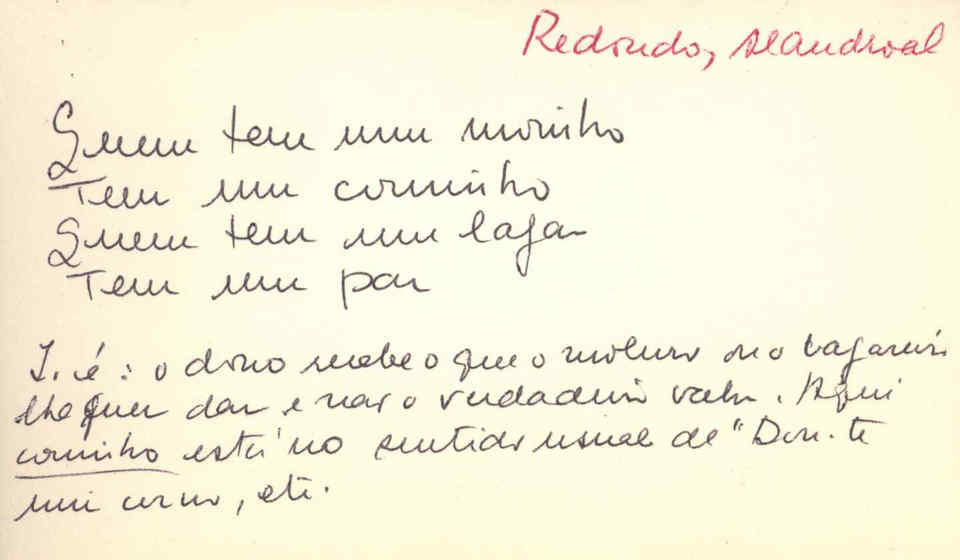 Redondo, Alandroal
Quem tem um moinho
Tem um corninho
Quem tem um lagar
Tem um par
I. é: o dono recebe o que o moleiro ou o lagareiro
lhe quer dar e não o verdadeiro valor. Aqui
corninho está no sentido usual de "Dou-te
um corno, etc.